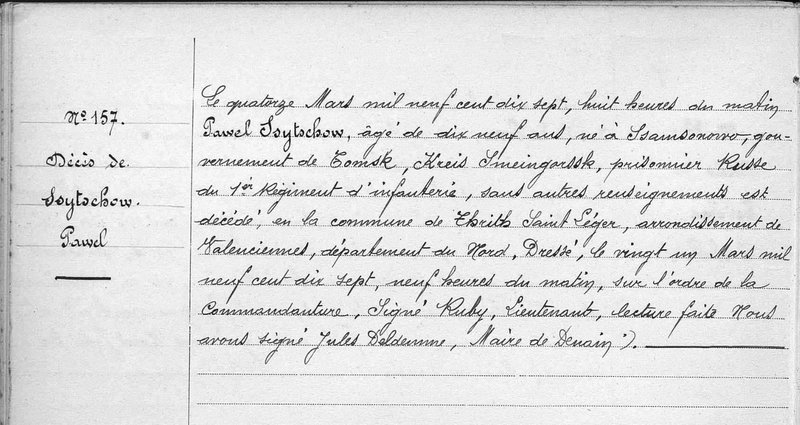 Nº 157.
Décès de
Ssytschow.
Pawel
Le quatorze Mars mil neuf cent dix sept, huit heures du matin
Pawel Ssytschow, âgé de dix neuf ans, né à Ssamsonowo, gou-
vernement de Tomsk, Kreis Smeingorssk, prisonnier Russe
du 1er Régiment d'infanterie, sans autres renseignements est
décédé, en la commune de Thrith Saint Léger, arrondissement de
Valenciennes, département du Nord, Dressé, le vingt un Mars mil
neuf cent dix sept, neuf heures du matin, sur l'ordre de la
Commandanture, Signé Ruby, Lieutenant, lecture faite Nous
avons signé Jules Maire de Denain).